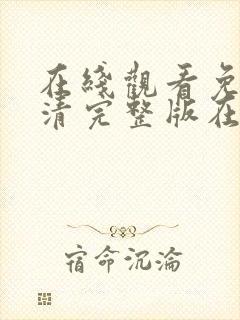 在綫觀看免
清完整版在
宿命沉淪